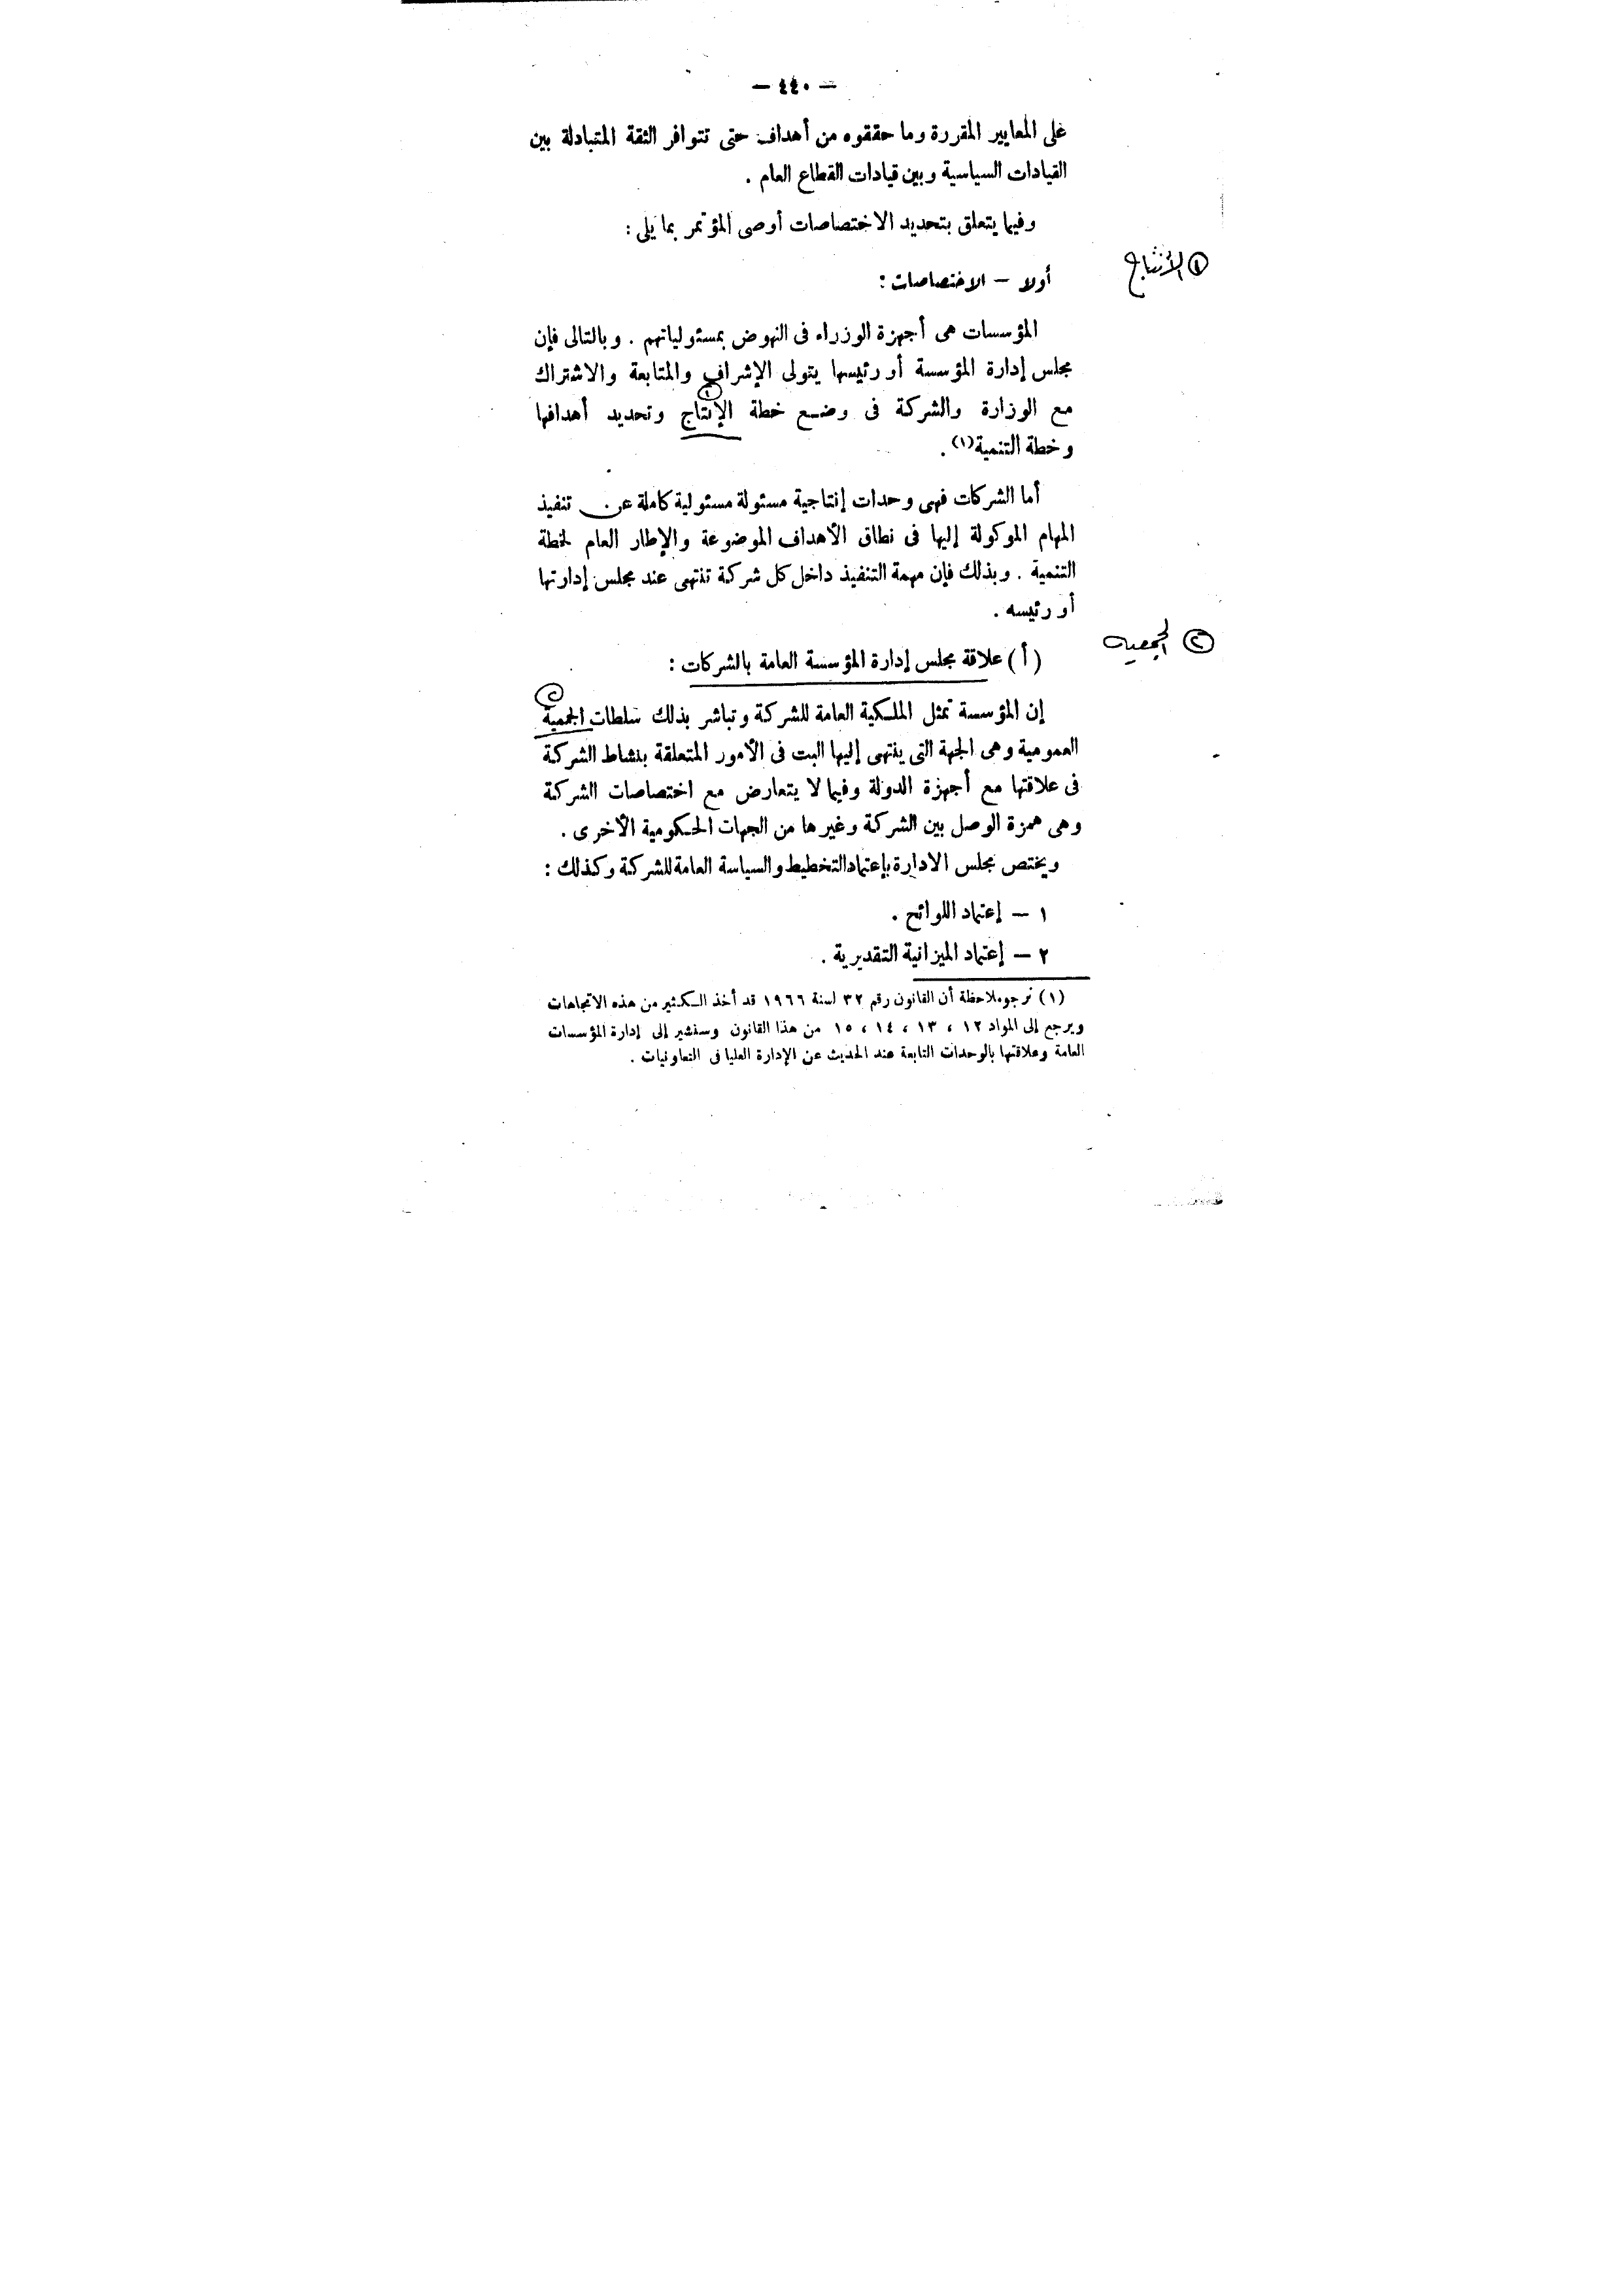 — ٤٤٠ —
على المعايير المقررة وما حققوه من أهداف حتى تتوافر الثقة المتبادلة بين
القيادات السياسية وبين قيادات القطاع العام .
وفيما يتعلق بتحديد الاختصاصات أوصى المؤتمر بما يلى :
① الأنتاج
أولا — الاختصاصات :
المؤسسات هى أجهزة الوزراء فى النهوض بمسئولياتهم . وبالتالى فإن
مجلس إدارة المؤسسة أو رئيسها يتولى الإشراف والمتابعة والاشتراك
مع الوزارة والشركة فى وضع خطة الإنتاج وتحديد أهدافها
وخطة التنمية(١) .
أما الشركات فهى وحدات إنتاجية مسئولة مسئولية كاملة عن تنفيذ
المهام الموكولة إليها فى نطاق الأهداف الموضوعة والإطار العام لخطة
التنمية . وبذلك فإن مهمة التنفيذ داخل كل شركة تنتهى عند مجلس إدارتها
أو رئيسه .
② الجمعية
(أ) علاقة مجلس إدارة المؤسسة العامة بالشركات :
إن المؤسسة تمثل الملكية العامة للشركة وتباشر بذلك سلطات الجمعية
العمومية وهى الجهة التى ينتهى إليها البت فى الأمور المتعلقة بنشاط الشركة
فى علاقتها مع أجهزة الدولة وفيما لا يتعارض مع اختصاصات الشركة
وهى همزة الوصل بين الشركة وغيرها من الجهات الحكومية الأخرى .
ويختص مجلس الادارة بإعتماد التخطيط والسياسة العامة للشركة وكذلك :
١ — إعتماد اللوائح .
٢ — إعتماد الميزانية التقديرية .
(١) نرجو ملاحظة أن القانون رقم ٣٢ لسنة ١٩٦٦ قد أخذ الكثير من هذه الاتجاهات
ويرجع إلى المواد ١٢ ، ١٣ ، ١٤ ، ١٥ من هذا القانون وسنشير إلى إدارة المؤسسات
العامة وعلاقتها بالوحدات التابعة عند الحديث عن الإدارة العليا فى التعاونيات .